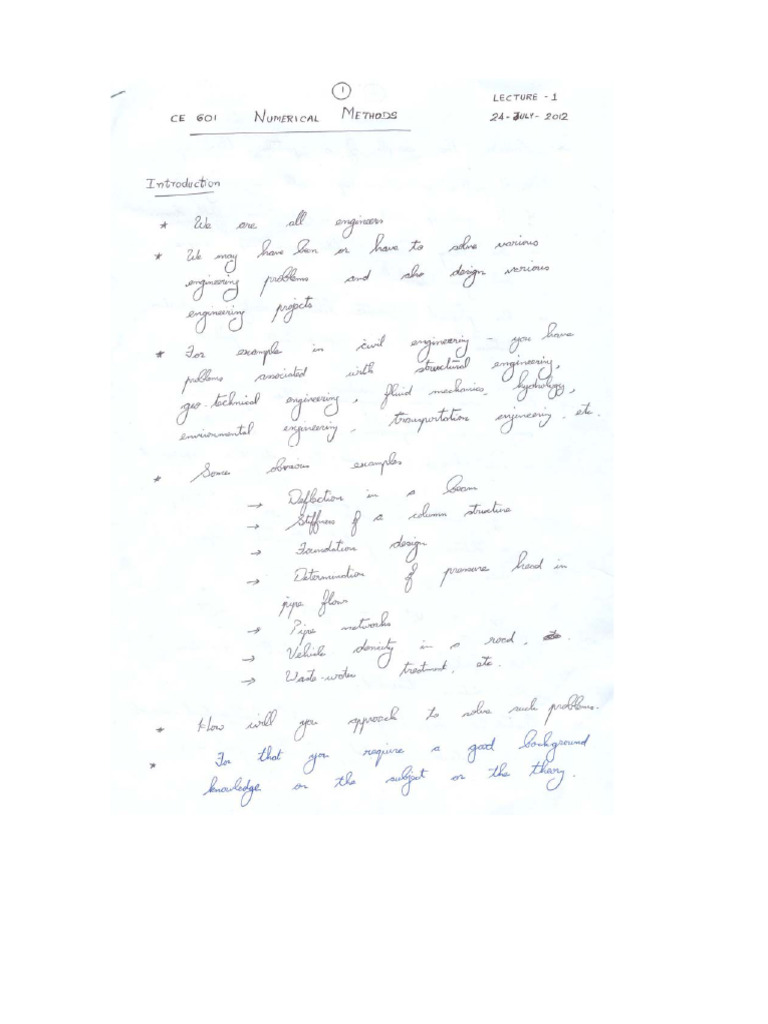 1
LECTURE - 1
CE 601 NUMERICAL METHODS
24-JULY-2012
Introduction
* We are all engineers
* We may have been or have to solve various
engineering problems and also design various
engineering projects
* For example in civil engineering - you have
problems associated with structural engineering,
geo-technical engineering, fluid mechanics, hydrology,
environmental engineering, transportation engineering, etc.
* Some obvious examples
→ Deflection in a beam
→ Stiffness of a column structure
→ Foundation design
→ Determination of pressure head in
pipe flow
→ Pipe networks
→ Vehicle density in a road,
→ Waste-water treatment, etc.
* How will you approach to solve such problems.
* For that you require a good background
knowledge on the subject or the theory.